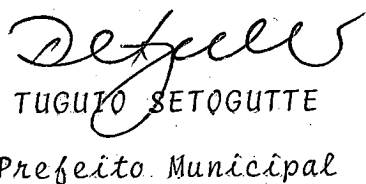 TUGUIO SETOGUTTE
Prefeito Municipal